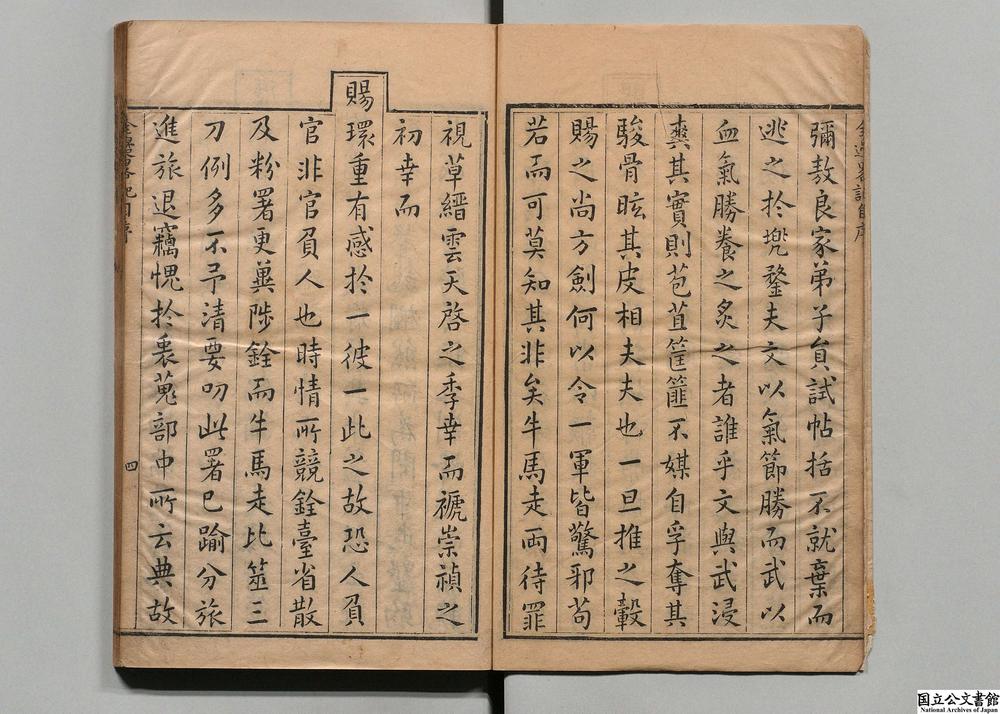 彌敖良家弟子負試帖括不就棄而
逃之於兠鍪夫文以氣節勝而武以
血氣勝養之炙之者誰乎文與武浸
爽其實則苞苴筐篚不媒自孚奪其
駿骨眩其皮相夫夫也一旦推之轂
賜之尚方劍何以令一軍皆驚邪苟
若而可莫知其非矣牛馬走両待罪
視草縉雲天啓之季幸而褫崇禎之
初幸而
賜環重有感於一彼一此之故恐人負
官非官負人也時情所競銓臺省散
及粉署更冀陟銓而牛馬走比筮三
刀例多不予清要叨此署已踰分旅
進旅退竊愧於裘蒐部中所云典故
四
国立公文書館
National Archives of Japan